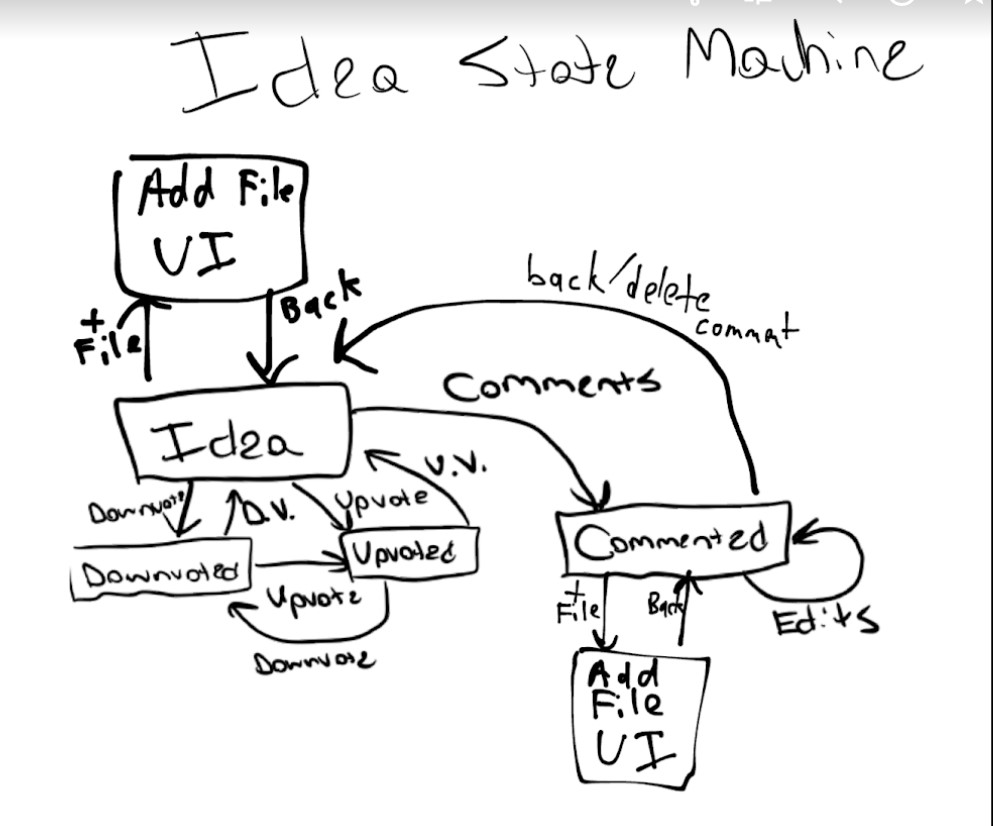 Idea State Machine
Add File
UI
+
File
Back
back/delete
commnt
Comments
Idea
U.V.
Downvote
D.V.
Upvote
Downvoted
Upvoted
Upvote
Downvote
Commented
+
File
Back
Edits
Add
File
UI